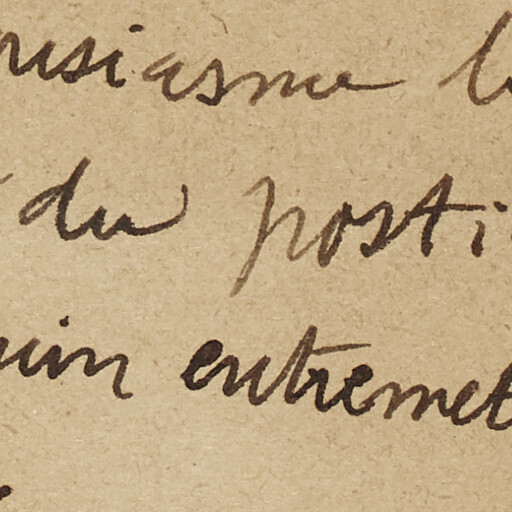 ousiasme l
du posti
uin entremet